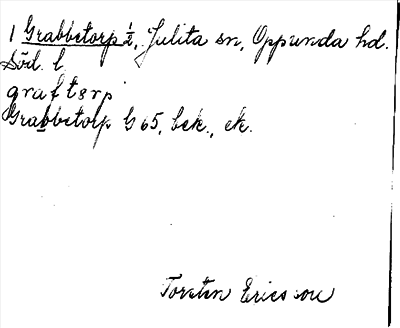 1 Grabbetorp ½, Julita sn, Oppunda hd.
Söd. l.
graftørp
Grabbetorp G 65, bek., ek.
Torsten Ericsson